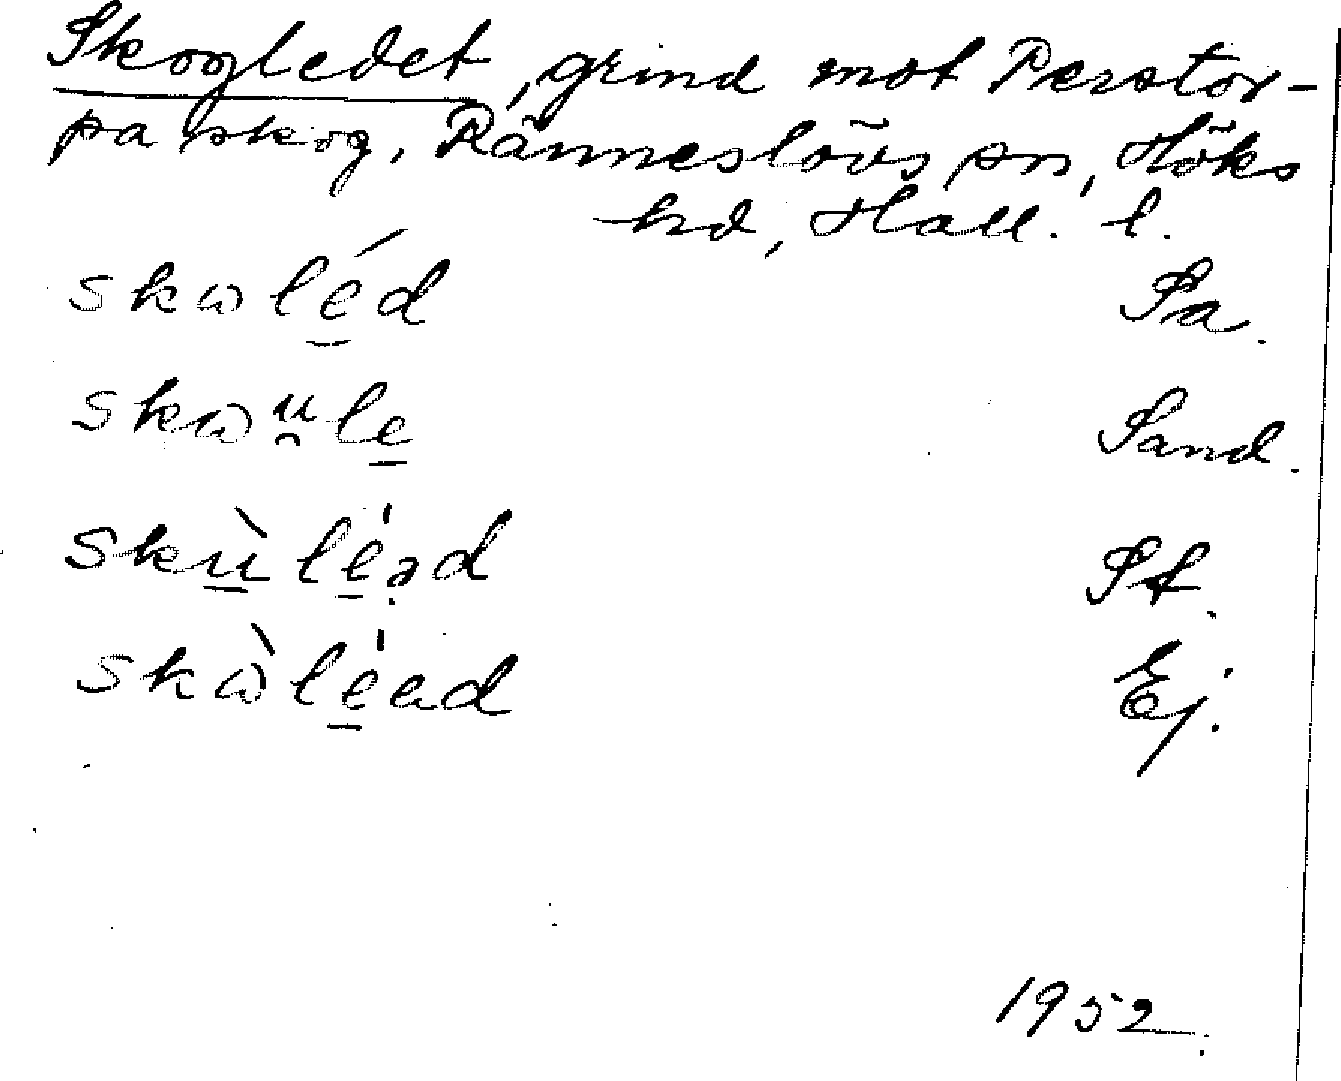 Skogledet, grind mot Perstor-
pa skog, Ränneslövs sn, Höks
hd, Hall. l.
skωlé̱d Sa.
skωu̯le̱ Sand.
skù̱lé̱əd St.
skὼlé̱ad Ej.
1952.